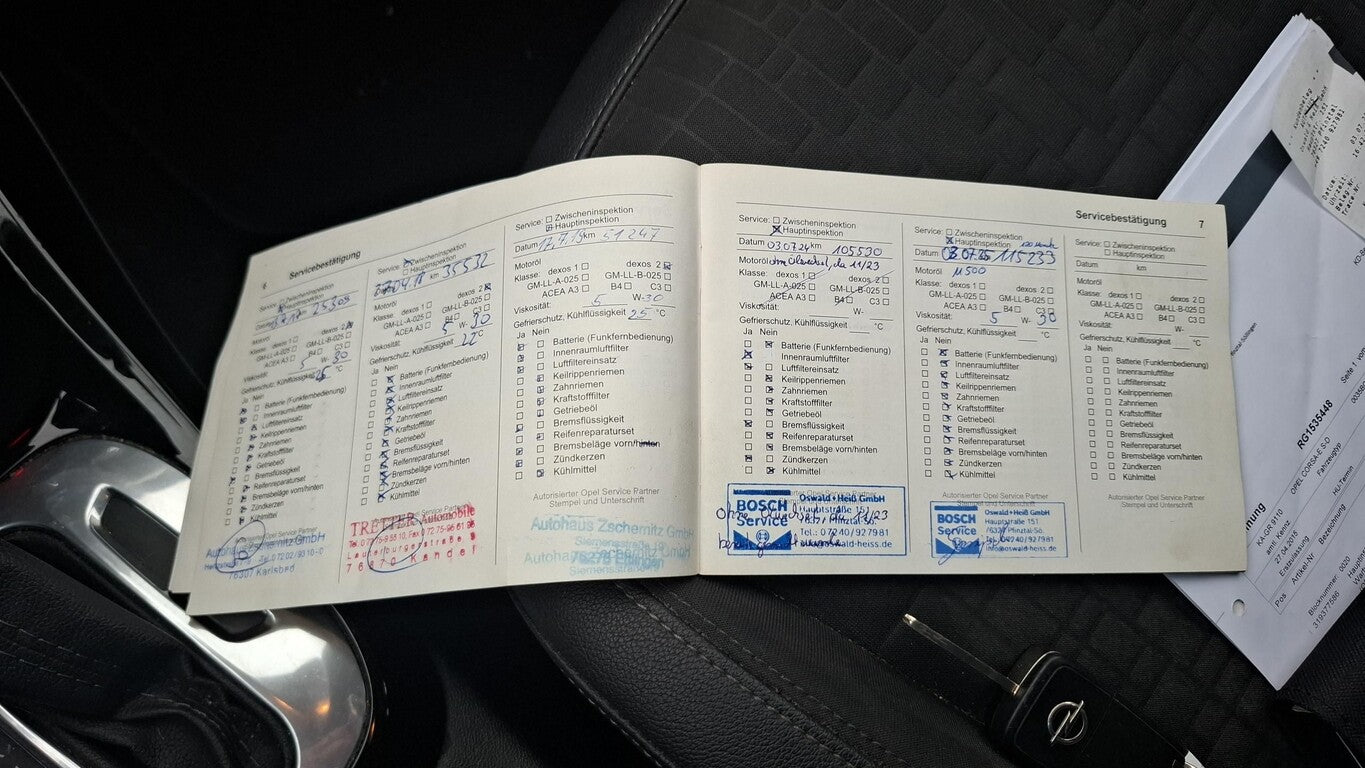 6
Servicebestätigung
Service: Zwischeninspektion
Hauptinspektion
Datum km 25305
Motoröl
Klasse: dexos 1 dexos 2
GM-LL-A-025 GM-LL-B-025
ACEA A3 B4 C3
Viskosität: 5 W- 30
Gefrierschutz, Kühlflüssigkeit 25 °C
Ja Nein
Batterie (Funkfernbedienung)
Innenraumluftfilter
Luftfiltereinsatz
Keilrippenriemen
Zahnriemen
Kraftstofffilter
Getriebeöl
Bremsflüssigkeit
Reifenreparaturset
Bremsbeläge vorn/hinten
Zündkerzen
Kühlmittel
Autohaus GmbH
Tel. 07202 / 9310-0
76307 Karlsbad
Service: Zwischeninspektion
Hauptinspektion
Datum km 35532
Motoröl
Klasse: dexos 1 dexos 2
GM-LL-A-025 GM-LL-B-025
ACEA A3 B4 C3
Viskosität: 5 W- 30
Gefrierschutz, Kühlflüssigkeit 22 °C
Ja Nein
Batterie (Funkfernbedienung)
Innenraumluftfilter
Luftfiltereinsatz
Keilrippenriemen
Zahnriemen
Kraftstofffilter
Getriebeöl
Bremsflüssigkeit
Reifenreparaturset
Bremsbeläge vorn/hinten
Zündkerzen
Kühlmittel
Service Partner
Automobile
Lauterburgerstraße
76870 Kandel
Service: Zwischeninspektion
Hauptinspektion
Datum 17.7.19 km 51247
Motoröl
Klasse: dexos 1 dexos 2
GM-LL-A-025 GM-LL-B-025
ACEA A3 B4 C3
Viskosität: 5 W-30
Gefrierschutz, Kühlflüssigkeit 25 °C
Ja Nein
Batterie (Funkfernbedienung)
Innenraumluftfilter
Luftfiltereinsatz
Keilrippenriemen
Zahnriemen
Kraftstofffilter
Getriebeöl
Bremsflüssigkeit
Reifenreparaturset
Bremsbeläge vorn/hinten
Zündkerzen
Kühlmittel
Autorisierter Opel Service Partner
Stempel und Unterschrift
Autohaus Zschernitz GmbH
Siemensstraße
76275 Ettlingen
Servicebestätigung 7
Service: Zwischeninspektion
Hauptinspektion
Datum 03.07.24 km 105530
Motoröl 11/23
Klasse: dexos 1 dexos 2
GM-LL-A-025 GM-LL-B-025
ACEA A3 B4 C3
Viskosität: W-
Gefrierschutz, Kühlflüssigkeit °C
Ja Nein
Batterie (Funkfernbedienung)
Innenraumluftfilter
Luftfiltereinsatz
Keilrippenriemen
Zahnriemen
Kraftstofffilter
Getriebeöl
Bremsflüssigkeit
Reifenreparaturset
Bremsbeläge vorn/hinten
Zündkerzen
Kühlmittel
BOSCH
Service
Oswald + Heiß GmbH
Hauptstraße 151
76327 Pfinztal-Sö.
Tel.: 07240/927981
Ohne 11/23
Service: Zwischeninspektion
Hauptinspektion
Datum 03.07.25 115233
Motoröl
Klasse: dexos 1 dexos 2
GM-LL-A-025 GM-LL-B-025
ACEA A3 B4 C3
Viskosität: 5 W- 30
Gefrierschutz, Kühlflüssigkeit °C
Ja Nein
Batterie (Funkfernbedienung)
Innenraumluftfilter
Luftfiltereinsatz
Keilrippenriemen
Zahnriemen
Kraftstofffilter
Getriebeöl
Bremsflüssigkeit
Reifenreparaturset
Bremsbeläge vorn/hinten
Zündkerzen
Kühlmittel
Autorisierter Opel Service Partner
BOSCH
Service
Oswald + Heiß GmbH
Hauptstraße 151
76327 Pfinztal-Sö.
Tel.: 07240/927981
info@oswald-heiss.de
Service: Zwischeninspektion
Hauptinspektion
Datum km
Motoröl
Klasse: dexos 1 dexos 2
GM-LL-A-025 GM-LL-B-025
ACEA A3 B4 C3
Viskosität: W-
Gefrierschutz, Kühlflüssigkeit °C
Ja Nein
Batterie (Funkfernbedienung)
Innenraumluftfilter
Luftfiltereinsatz
Keilrippenriemen
Zahnriemen
Kraftstofffilter
Getriebeöl
Bremsflüssigkeit
Reifenreparaturset
Bremsbeläge vorn/hinten
Zündkerzen
Kühlmittel
Autorisierter Opel Service Partner
Stempel und Unterschrift
Kundenbeleg
RG1535448
OPEL CORSA-E S-D
Fahrzeugtyp
HU-Termin
KA-GR 9110
amtl. Kennz.
27.04.2015
Erstzulassung
Pos Artikel-Nr Bezeichnung
Seite 1 von